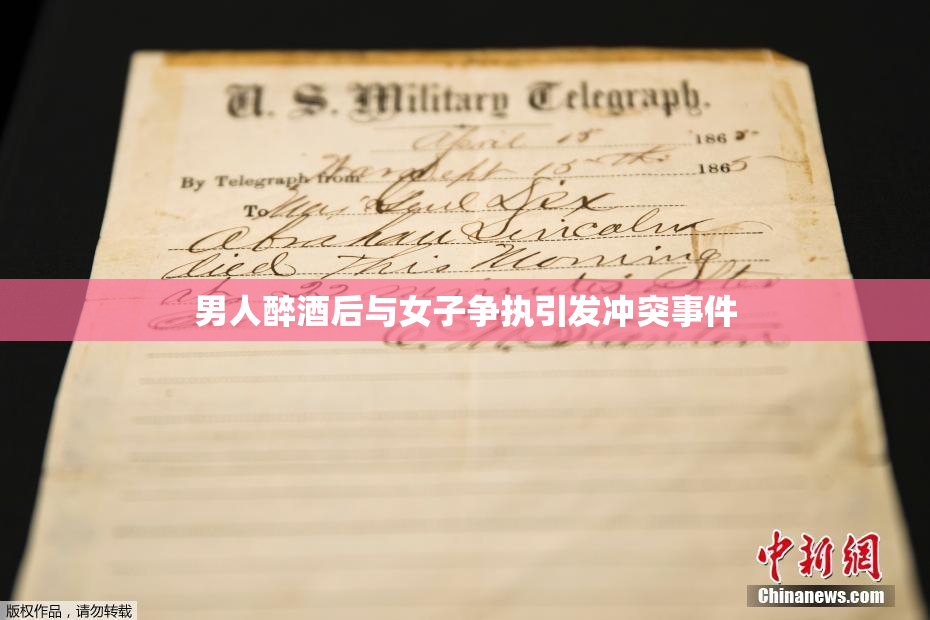 U. S. Military Telegraph.
April 15 1865
By Telegraph from War Dept 15th 1865
To Maj Genl Dix
Abraham Lincoln
died This Morning
at 22 minutes after
男人醉酒后与女子争执引发冲突事件
E. M. Stanton
中新网
Chinanews.com
版权作品，请勿转载